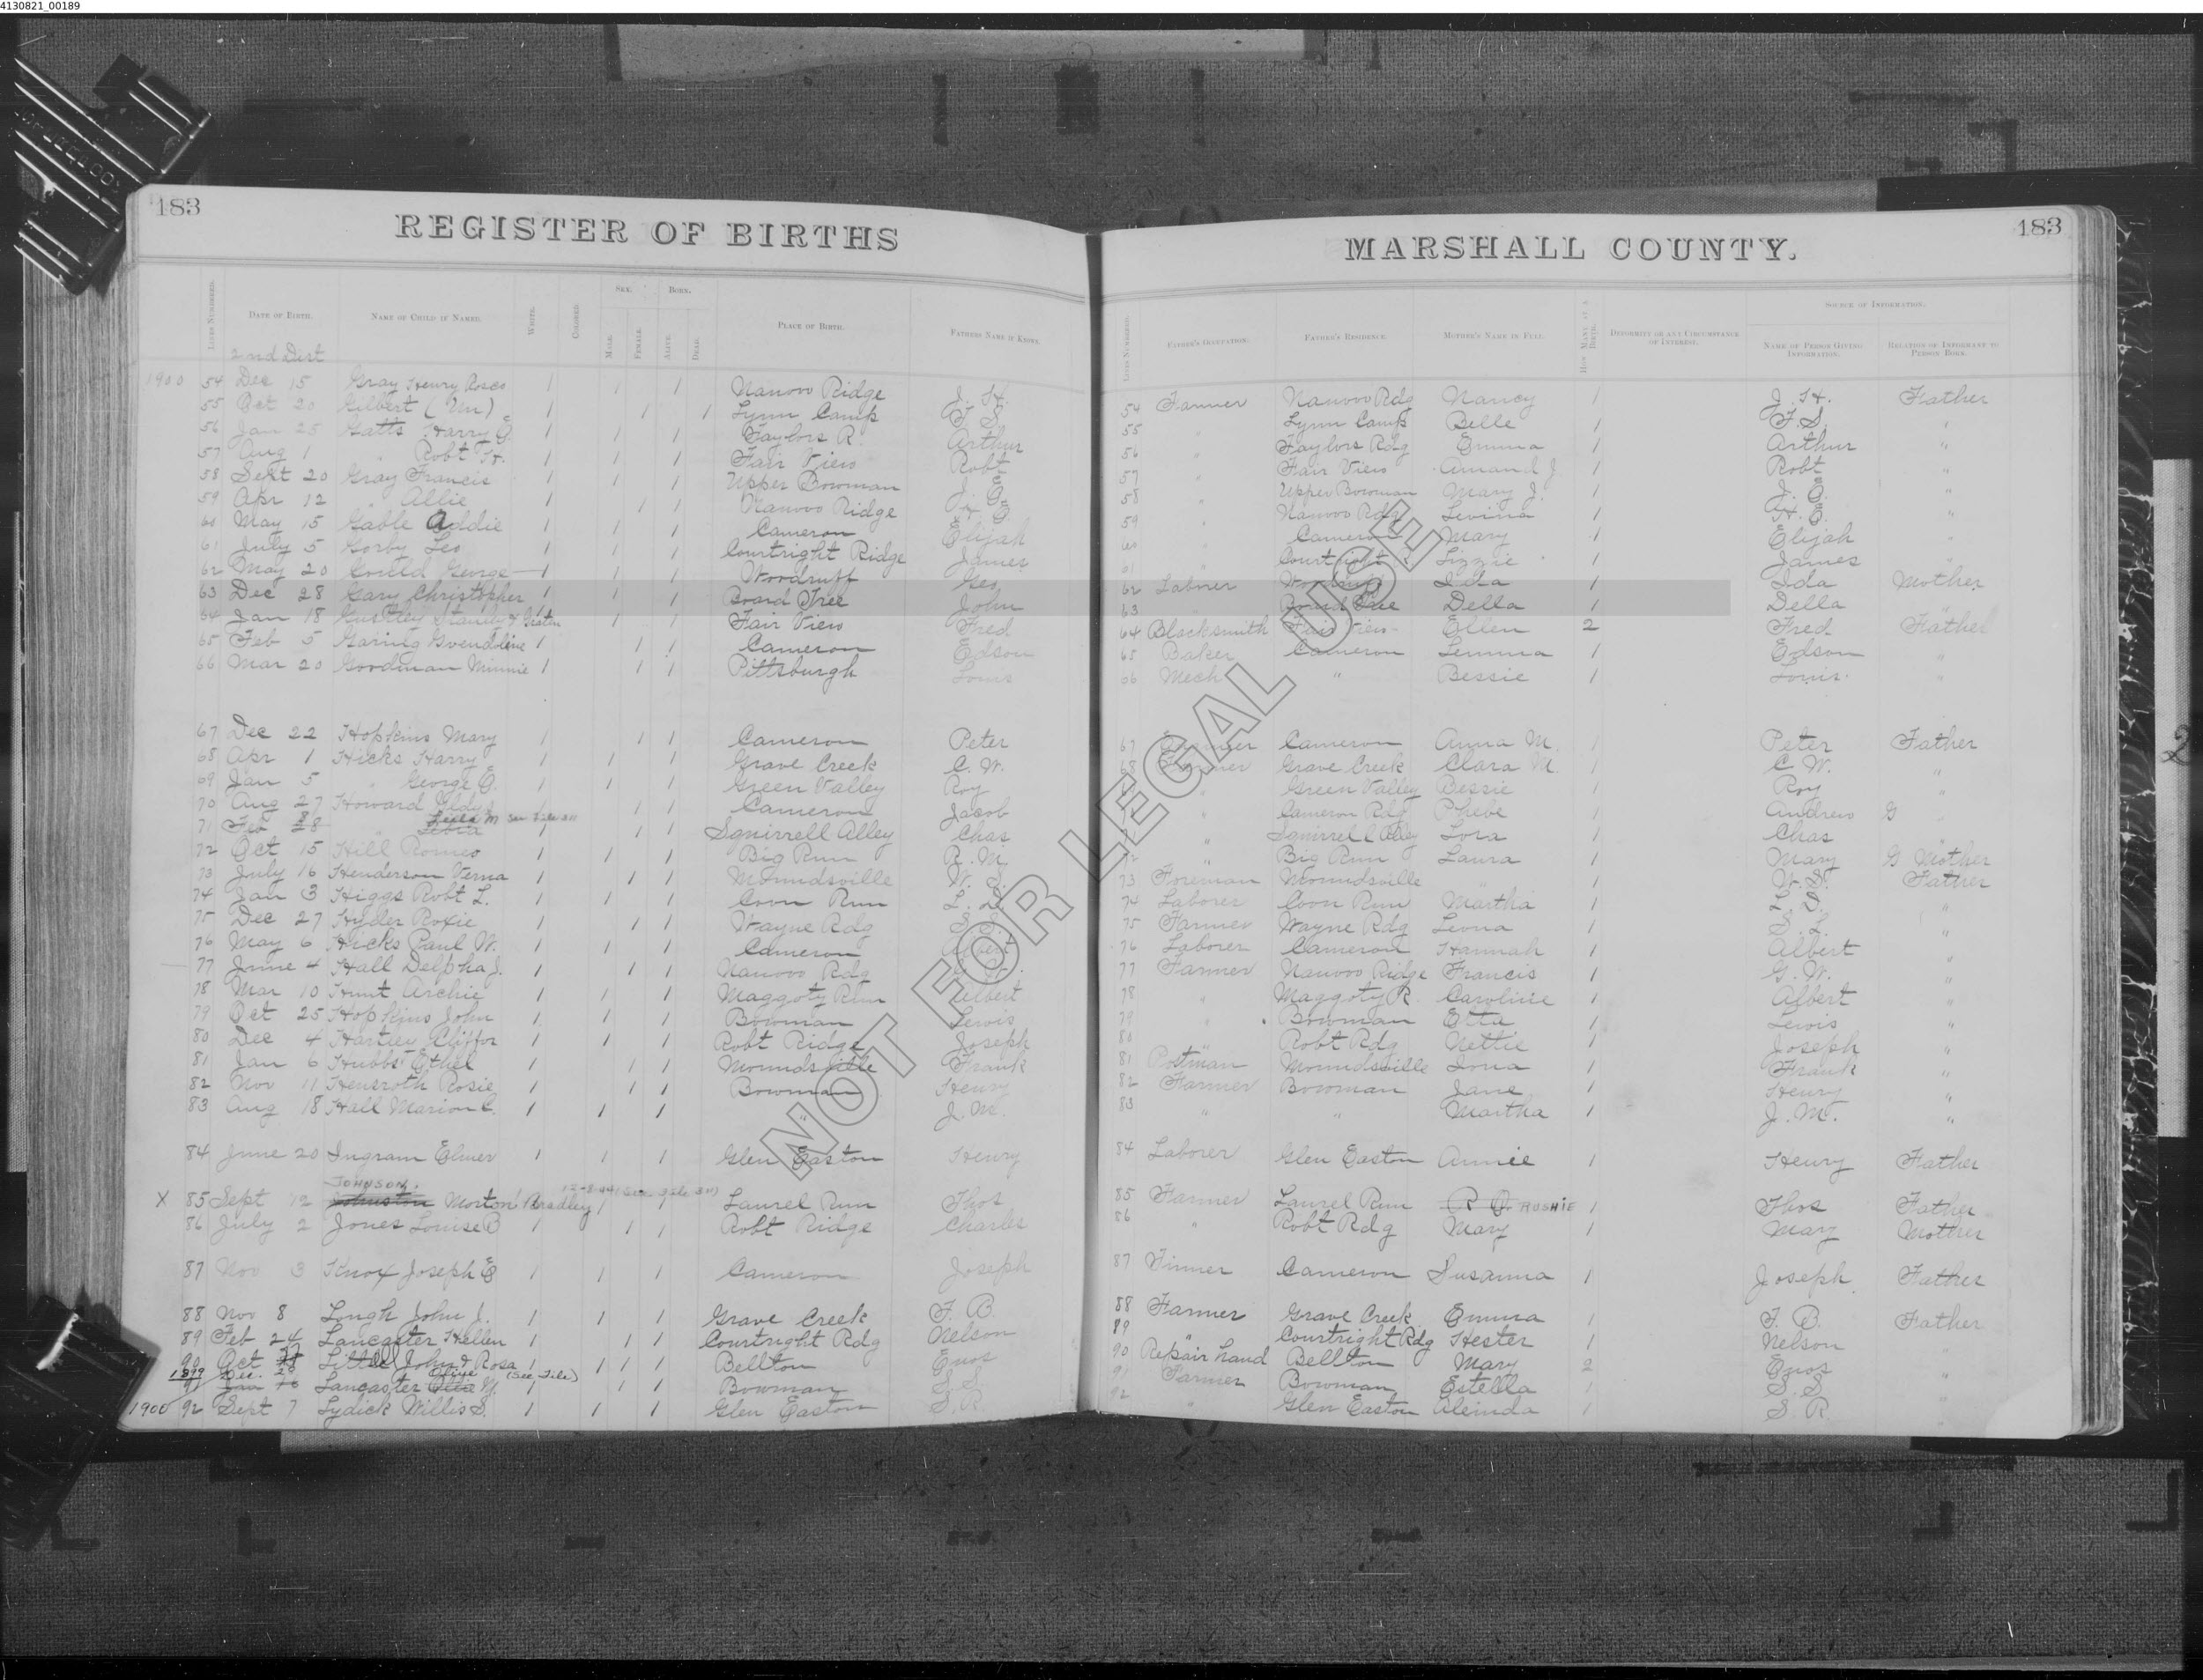 4130821_00189
183
REGISTER OF BIRTHS
MARSHALL COUNTY.
183
LINES NUMBERED. DATE OF BIRTH. NAME OF CHILD IF NAMED. WHITE. COLORED. SEX. MALE. FEMALE. BORN. ALIVE. DEAD. PLACE OF BIRTH. FATHERS NAME IF KNOWN.
LINES NUMBERED. FATHER'S OCCUPATION. FATHER'S RESIDENCE. MOTHER'S NAME IN FULL. HOW MANY AT A BIRTH. DEFORMITY OR ANY CIRCUMSTANCE OF INTEREST. SOURCE OF INFORMATION. NAME OF PERSON GIVING INFORMATION. RELATION OF INFORMANT TO PERSON BORN.
2nd Dist
1900 54 Dec 15 Gray Henry Rosco 1 1 1 Nauvoo Ridge J. H. 54 Farmer Nauvoo Rdg Nancy 1 J. H. Father
55 Oct 20 Gilbert (Un) 1 1 1 Lynn Camp F. S. 55 " Lynn Camp Belle 1 F. S. "
56 Jan 25 Gatts Harry E. 1 1 1 Taylors R. Arthur 56 " Taylors Rdg Emma 1 Arthur "
57 Aug 1 " Robt H. 1 1 1 Fair View Robt 57 " Fair View Amand J 1 Robt "
58 Sept 20 Gray Francis 1 1 1 Upper Bowman J. E. 58 " Upper Bowman Mary J. 1 J. E. "
59 Apr 12 " Allie 1 1 1 Nauvoo Ridge H. E. 59 " Nauvoo Rdg Levina 1 H. E. "
60 May 15 Gable Addie 1 1 1 Cameron Elijah 60 " Cameron Mary 1 Elijah "
61 July 5 Gorby Leo 1 1 1 Courtright Ridge James 61 " Courtright R Lizzie 1 James "
62 May 20 Gould George 1 1 1 Woodruff Geo 62 Labrer Woodruff Ida 1 Ida Mother
63 Dec 28 Gary Christopher 1 1 1 Board Tree John 63 " Board Tree Della 1 Della "
64 Jan 18 Stanley & 1 1 Fair View Fred 64 Blacksmith Fair View Ellen 2 Fred Father
65 Feb 5 Garing Gwendoline 1 1 1 Cameron Edson 65 Baker Cameron Lemma 1 Edson "
66 Mar 20 Goodman Minnie 1 1 1 Pittsburgh Louis 66 Mech " Bessie 1 Louis "
67 Dec 22 Hopkins Mary 1 1 1 Cameron Peter 67 Cameron Anna M. 1 Peter Father
68 Apr 1 Hicks Harry 1 1 1 Grave Creek C. W. 68 Farmer Grave Creek Clara M. 1 C. W. "
69 Jan 5 " George E. 1 1 1 Green Valley Roy " Green Valley Bessie 1 Roy "
70 Aug 27 Howard Gldys 1 1 Cameron Jacob " Cameron Rdg Phebe 1 Andrew G "
71 Feb 28 " M See File 311 1 1 1 Squirrell Alley Chas 71 " Squirrel Alley Lora 1 Chas "
72 Oct 15 Hill Romeo 1 1 1 Big Run R. M. 72 " Big Run Laura 1 Mary G Mother
73 July 16 Henderson Verna 1 1 1 Moundsville W. S. 73 Foreman Moundsville 1 W. S. Father
74 Jan 3 Higgs Robt L. 1 1 1 Coon Run L. D. 74 Laborer Coon Run Martha 1 L. D. "
75 Dec 27 Hyder Roxie 1 1 1 Wayne Rdg S. L. 75 Farmer Wayne Rdg Leona 1 S. L. "
76 May 6 Hicks Paul W. 1 1 1 Cameron Albert 76 Laborer Cameron Hannah 1 Albert "
77 June 4 Hall Delpha J. 1 1 1 Nauvoo Rdg G. W. 77 Farmer Nauvoo Ridge Francis 1 G. W. "
78 Mar 10 Hunt Archie 1 1 1 Maggoty Run Albert 78 " Maggoty R. Caroline 1 Albert "
79 Oct 25 Hopkins John 1 1 1 Bowman Lewis 79 " Bowman Etta 1 Lewis "
80 Dec 4 Hartley Cliffor 1 1 1 Robt Ridge Joseph 80 " Robt Rdg Nettie 1 Joseph "
81 Jan 6 Hubbs Ethel 1 1 1 Moundsville Frank 81 Potman Moundsville Iona 1 Frank "
82 Nov 11 Hensroth Rosie 1 1 1 Bowman Henry 82 Farmer Bowman Jane 1 Henry "
83 Aug 18 Hall Marion C. 1 1 1 " J. M. 83 " " Martha 1 J. M. "
84 June 20 Ingram Elmer 1 1 1 Glen Easton Henry 84 Laborer Glen Easton Annie 1 Henry Father
JOHNSON.
X 85 Sept 12 Johnston Morton Bradley 1 1 1 Laurel Run Thos 85 Farmer Laurel Run R. O. ROSHIE 1 Thos Father
86 July 2 Jones Louise B 1 1 1 Robt Ridge Charles 86 " Robt Rdg Mary 1 Mary Mother
87 Nov 3 Knox Joseph E 1 1 1 Cameron Joseph 87 Tinner Cameron Susanna 1 Joseph Father
88 Nov 8 Lough John J. 1 1 1 Grave Creek F. B. 88 Farmer Grave Creek Emma 1 F. B. Father
89 Feb 24 Lancaster Hellen 1 1 1 Courtright Rdg Nelson 89 " Courtright Rdg Hester 1 Nelson "
90 Oct Littell John & Rosa 1 1 1 1 Bellton Enos 90 Repair hand Bellton Mary 2 Enos "
1899 91 Dec. 20 Lancaster Olive M. (See File) 1 1 1 Bowman S. S. 91 Farmer Bowman Estella 1 S. S. "
1900 92 Sept 7 Lydick Willis S. 1 1 1 Glen Easton S. R. 92 " Glen Easton Aleinda 1 S. R "
NOT FOR LEGAL USE
2